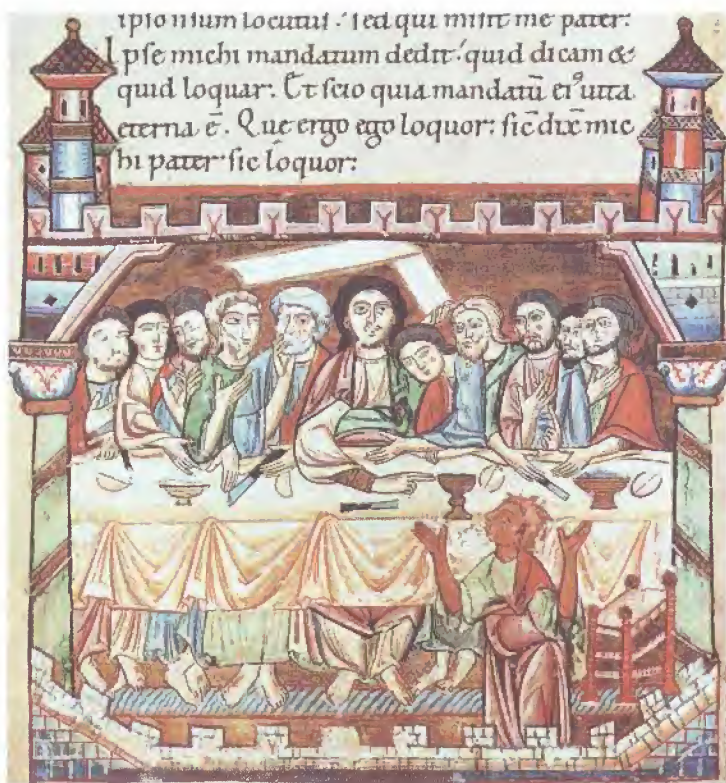 ipso n sum locutus. Sed qui misit me pater:
Ipse michi mandatum dedit: quid dicam &
quid loquar. Et scio quia mandatū ei⁹ uita
eterna ē. Que ergo ego loquor: sic dix̄ mic
hi pater sic loquor: